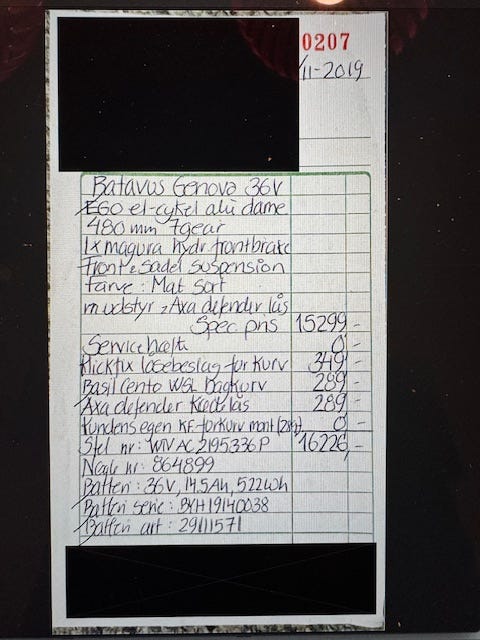 0207
/11-2019
Batavus Genova 36V
EGO el-cykel alu dame
480 mm 7gear
1x magura hydr. frontbrake
Front & Sadel suspension
Farve : Mat sort
m. udstyr : Axa defender lås
Spec. pris 15299,-
Servicehæfte 0,-
Klickfix låsebeslag for kurv 349,-
Basil Cento WSL Bagkurv 289,-
Axa defender Kædelås 289,-
Kundens egen KF forkurv mont (2m) 0,-
Stel nr: WIVAC2195336P 16226,-
Nøgle nr: 864899
Batteri: 36V, 14.5Ah, 522Wh
Batteri serie: BYH19140038
Batteri art: 29111571